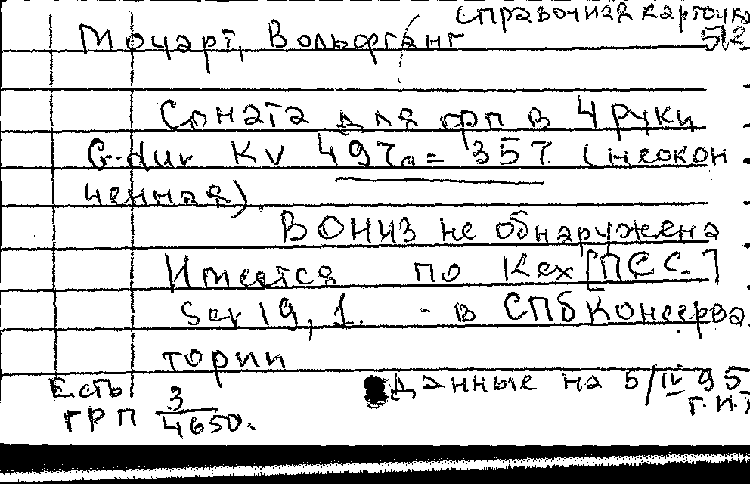 справочная карточка
Моцарт, Вольфганг 512
Соната для фп в 4 руки
G-dur KV 497a = 357 (неокон
ченная)
В ОНИЗ не обнаружена
Имеется по Кех [ПСС.]
Ser 19, 1. - в СПб Консерва
тории
Есть Данные на 5/IV 95
ГРП 3/4650.